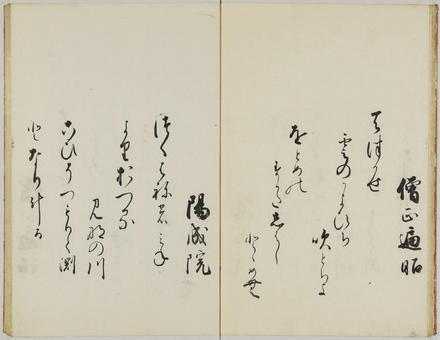 僧正遍昭
天津かせ
雲のかよひち
吹とちよ
をとめの
すかたしはし
とゝめむ
陽成院
つくはねのみね
よりおつる
みなの川
こひそつもりて淵
となりける